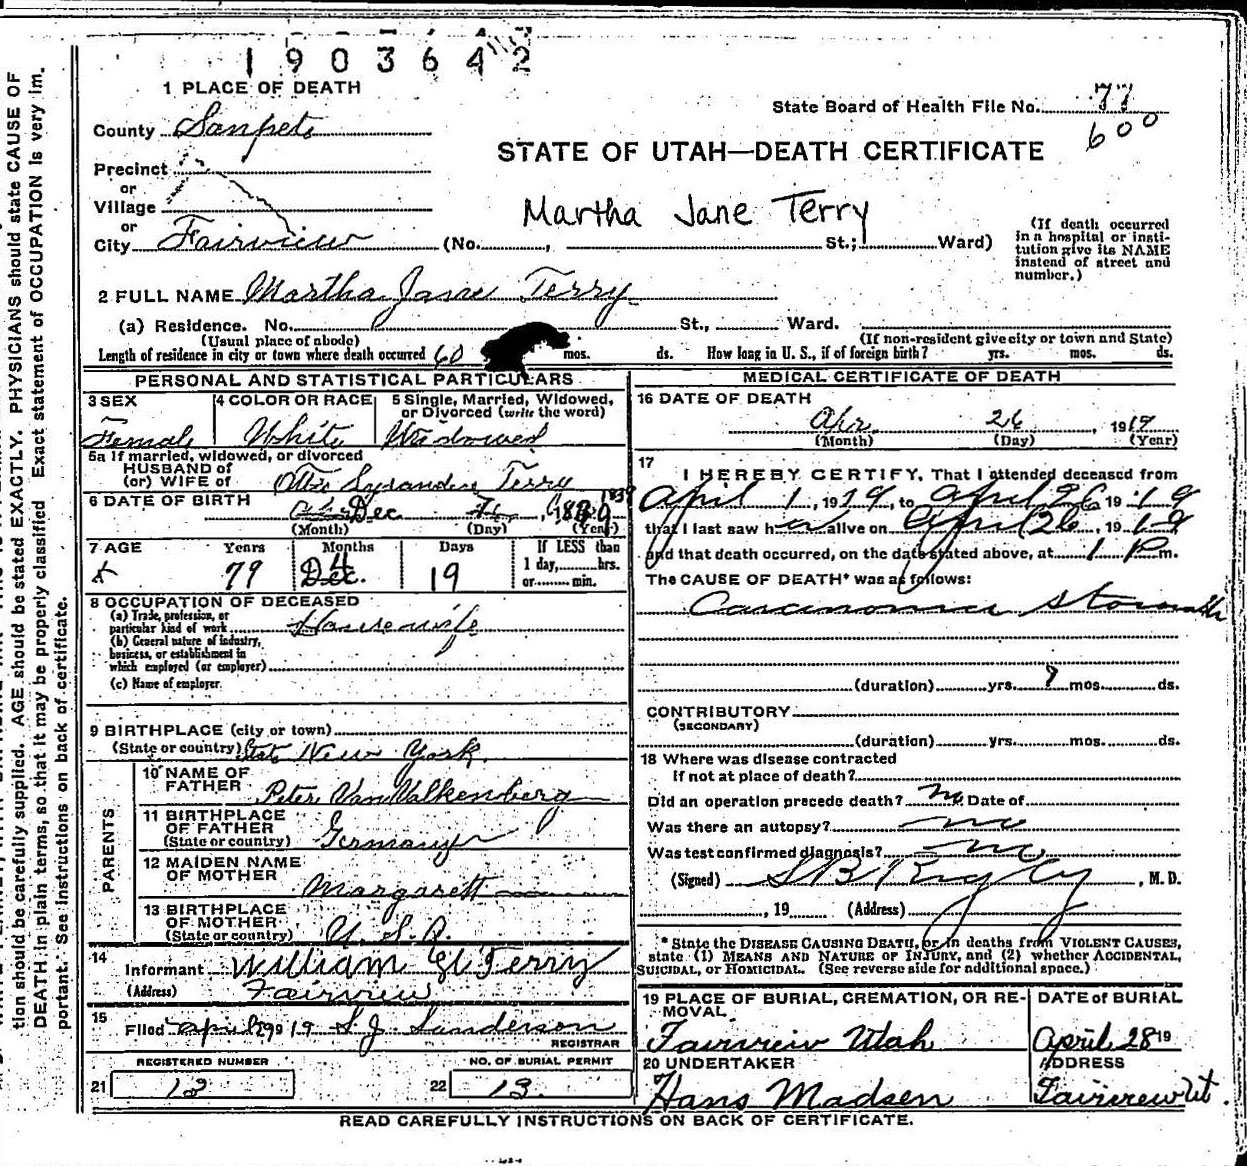 1903642
1 PLACE OF DEATH
State Board of Health File No. 77
600
County Sanpete
STATE OF UTAH—DEATH CERTIFICATE
Precinct
or
Village
Martha Jane Terry
or
City Fairview (No. , St.; Ward)
(If death occurred
in a hospital or insti-
tution give its NAME
instead of street and
number.)
2 FULL NAME Martha Jane Terry
(a) Residence. No. St., Ward.
(Usual place of abode) (If non-resident give city or town and State)
Length of residence in city or town where death occurred 60 mos. ds. How long in U. S., if of foreign birth? yrs. mos. ds.
PERSONAL AND STATISTICAL PARTICULARS
3 SEX Female
4 COLOR OR RACE White
5 Single, Married, Widowed,
or Divorced (write the word)
Widowed
5a If married, widowed, or divorced
HUSBAND of
(or) WIFE of Otis Lysander Terry
6 DATE OF BIRTH Dec 7 1839
(Month) (Day) (Year)
7 AGE Years Months Days If LESS than
1 day, hrs.
or min.
79 4 Dec. 19
8 OCCUPATION OF DECEASED
(a) Trade, profession, or
particular kind of work Housewife
(b) General nature of industry,
business, or establishment in
which employed (or employer)
(c) Name of employer
9 BIRTHPLACE (city or town)
(State or country) State New York
PARENTS
10 NAME OF
FATHER Peter VanValkenberg
11 BIRTHPLACE
OF FATHER
(State or country) Germany
12 MAIDEN NAME
OF MOTHER Margarett
13 BIRTHPLACE
OF MOTHER
(State or country) U. S. A.
14
Informant William El Terry
(Address) Fairview
15
Filed April 29 19 S. J. Sanderson
REGISTRAR
REGISTERED NUMBER
21 12
NO. OF BURIAL PERMIT
22 13
MEDICAL CERTIFICATE OF DEATH
16 DATE OF DEATH
Apr. 26, 1919
(Month) (Day) (Year)
17
I HEREBY CERTIFY, That I attended deceased from
April 1, 1919, to April 26 1919
that I last saw her alive on April 26, 1919
and that death occurred, on the date stated above, at 1 P m.
The CAUSE OF DEATH* was as follows:
Carcinoma Stomach
(duration) yrs. 9 mos. ds.
CONTRIBUTORY
(SECONDARY)
(duration) yrs. mos. ds.
18 Where was disease contracted
if not at place of death?
Did an operation precede death? no Date of
Was there an autopsy? no
Was test confirmed diagnosis? no
(Signed) S B Rigby, M. D.
, 19 (Address)
* State the DISEASE CAUSING DEATH, or in deaths from VIOLENT CAUSES,
state (1) MEANS AND NATURE OF INJURY, and (2) whether ACCIDENTAL,
SUICIDAL, or HOMICIDAL. (See reverse side for additional space.)
19 PLACE OF BURIAL, CREMATION, OR RE-
MOVAL
Fairview Utah
DATE of BURIAL
April 28 19
20 UNDERTAKER
Hans Madsen
ADDRESS
Fairview Ut.
READ CAREFULLY INSTRUCTIONS ON BACK OF CERTIFICATE.
tion should be carefully supplied. AGE should be stated EXACTLY. PHYSICIANS should state CAUSE OF
DEATH in plain terms, so that it may be properly classified. Exact statement of OCCUPATION is very im-
portant. See instructions on back of certificate.